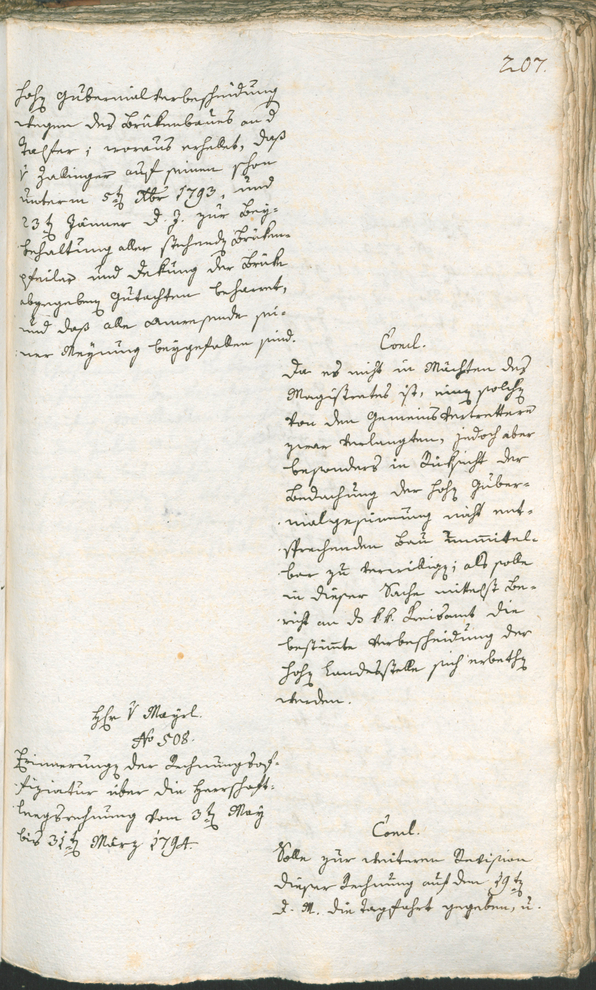 207.
hohe Gubernialverbescheidung
wegen des Brükenbaues an d
Talfer; woraus erhelet, daß
v Zalinger auf seinen schon
unterm 5t Xbr 1793, und
23t Jänner d. J. zur Bey-
behaltung aller stehend Brüken-
pfeiler und Dekung der Brüke
abgegeben Gutachten beharret,
und daß alle Anwesende sei-
ner Meynung beygefallen sind.
Concl.
Da es nicht in Mächten des
Magistrates ist, einen solchen
von den Gemeinsvertrettern
zwar verlangten, jedoch aber
besonders in Rüksicht der
Bedachung der hohen Guber-
nialgesinnung nicht ent-
sprechenden Bau unmittel-
bar zu verwilligen; als solle
in dieser Sache mittelst Be-
richt an d k.k. Kreisamt die
bestimte Verbescheidung der
hohen Landesstelle sich erbethen
werden.
Hr v Mayrl.
No 508.
Erinnerungen der Rechnungsof-
fiziatur über die Herrschaft-
lungsrechnung vom 3t May
bis 31t März 1794.
Concl.
Solle zur weiteren Revision
dieser Rechnung auf den 19t
d. M. die Tagfahrt gegeben, u.